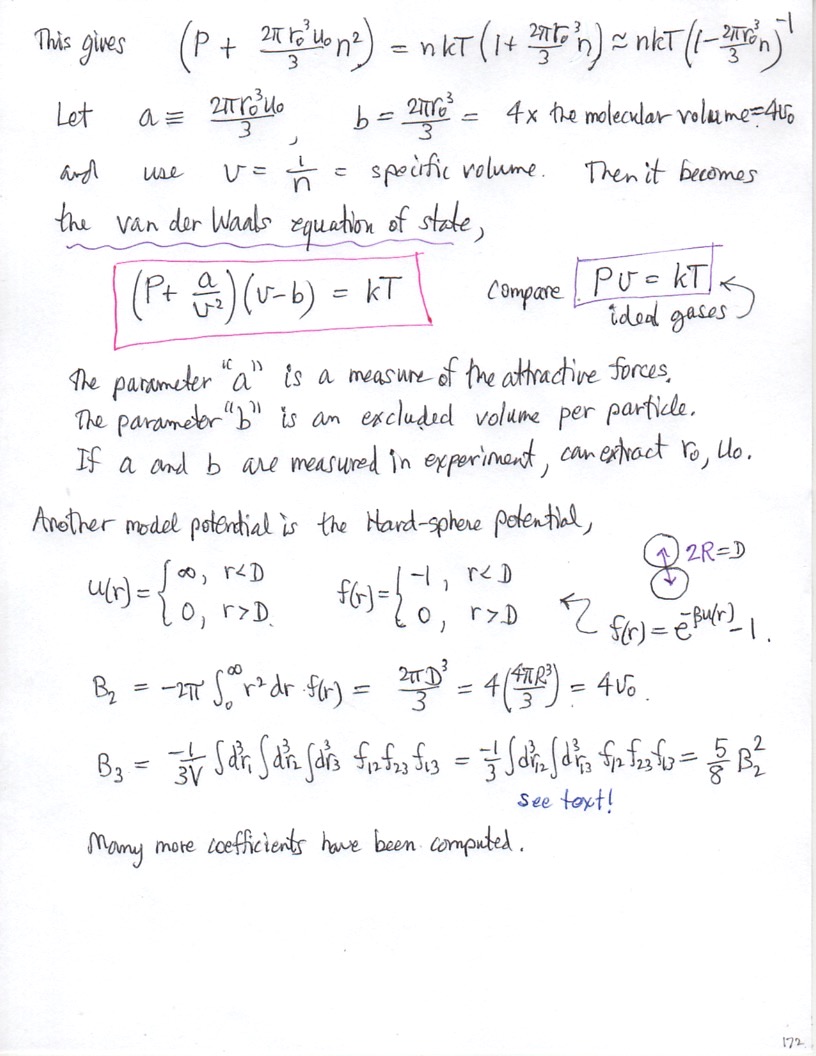 This gives (P + 2πr₀³u₀/3 n²) = nkT(1 + 2πr₀³/3 n) ≈ nkT(1 - 2πr₀³/3 n)⁻¹
Let a ≡ 2πr₀³u₀/3 , b = 2πr₀³/3 = 4 x the molecular volume = 4v₀
and use v = 1/n = specific volume. Then it becomes
the van der Waals equation of state,
(P + a/v²)(v - b) = kT compare Pv = kT
ideal gases
The parameter "a" is a measure of the attractive forces.
The parameter "b" is an excluded volume per particle.
If a and b are measured in experiment, can extract r₀, u₀.
Another model potential is the Hard-sphere potential,
2R = D
u(r) = { ∞, r<D f(r) = { -1, r<D
0, r>D. 0, r>D
f(r) = e^{-βu(r)} - 1.
B₂ = -2π ∫₀^∞ r² dr f(r) = 2πD³/3 = 4(4πR³/3) = 4v₀.
B₃ = -1/3V ∫d³r₁ ∫d³r₂ ∫d³r₃ f₁₂ f₂₃ f₁₃ = -1/3 ∫d³r₁₂ ∫d³r₁₃ f₁₂ f₂₃ f₁₃ = 5/8 B₂²
see text!
Many more coefficients have been computed.
172